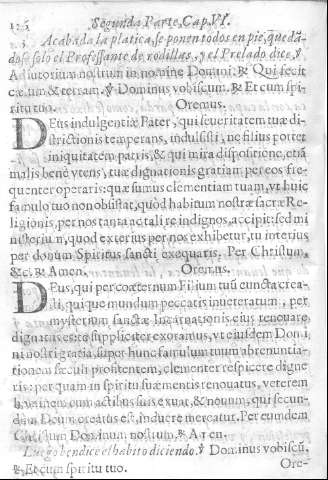 Segunda Parte, Cap. VI.
Acabada la platica, se ponen todos en pie, quedã
dose solo el Professante de rodillas, y el Prelado dice, ℣
Adiutorium nostrum in nomine Domini: ℟ Qui fecit
cælum & terram. ℣ Dominus vobiscum. ℟ Et cum spi-
ritu tuo. Oremus.
DEus indulgentiæ Pater, qui seueritatem tuæ di-
strictionis temperans, indulsisti, ne filius portet
iniquitatem patris, & qui mira dispositione, etiã
malis bene vtens, tuæ dignationis gratiam per eos fre-
quenter operaris: quæsumus clementiam tuam, vt huic
famulo tuo non obstat, quòd habitum nostræ sacræ Re-
ligionis, per nos tanta ac tali re indignos, accipit: sed mi
nisterium, quod exterius per nos exhibetur, tu interius
per donum Spiritus sancti exequaris. Per Christum,
&c. ℟ Amen. Oremus.
DEus, qui per coæternum Filium tuũ cuncta crea-
sti, qui que mundum peccatis inueteratum, per
mysterium sanctæ Incarnationis eius renouare
dignatus es: te suppliciter exoramus, vt eiusdem Domi
ni nostri gratia, super hunc famulum tuum abrenuntia-
tionem sæculi profitentem, clementer respicere digne
ris: per quam in spiritu suæ mentis renouatus, veterem
hominem cum actibus suis exuat, & nouum, qui secun-
dum Deum creatus est, induere mereatur. Per eumdem
Christum Dominum nostrum. ℟ Amen.
Luego bendice el habito diciendo. ℣ Dominus vobiscũ.
℟ Et cum spiritu tuo. Ore-